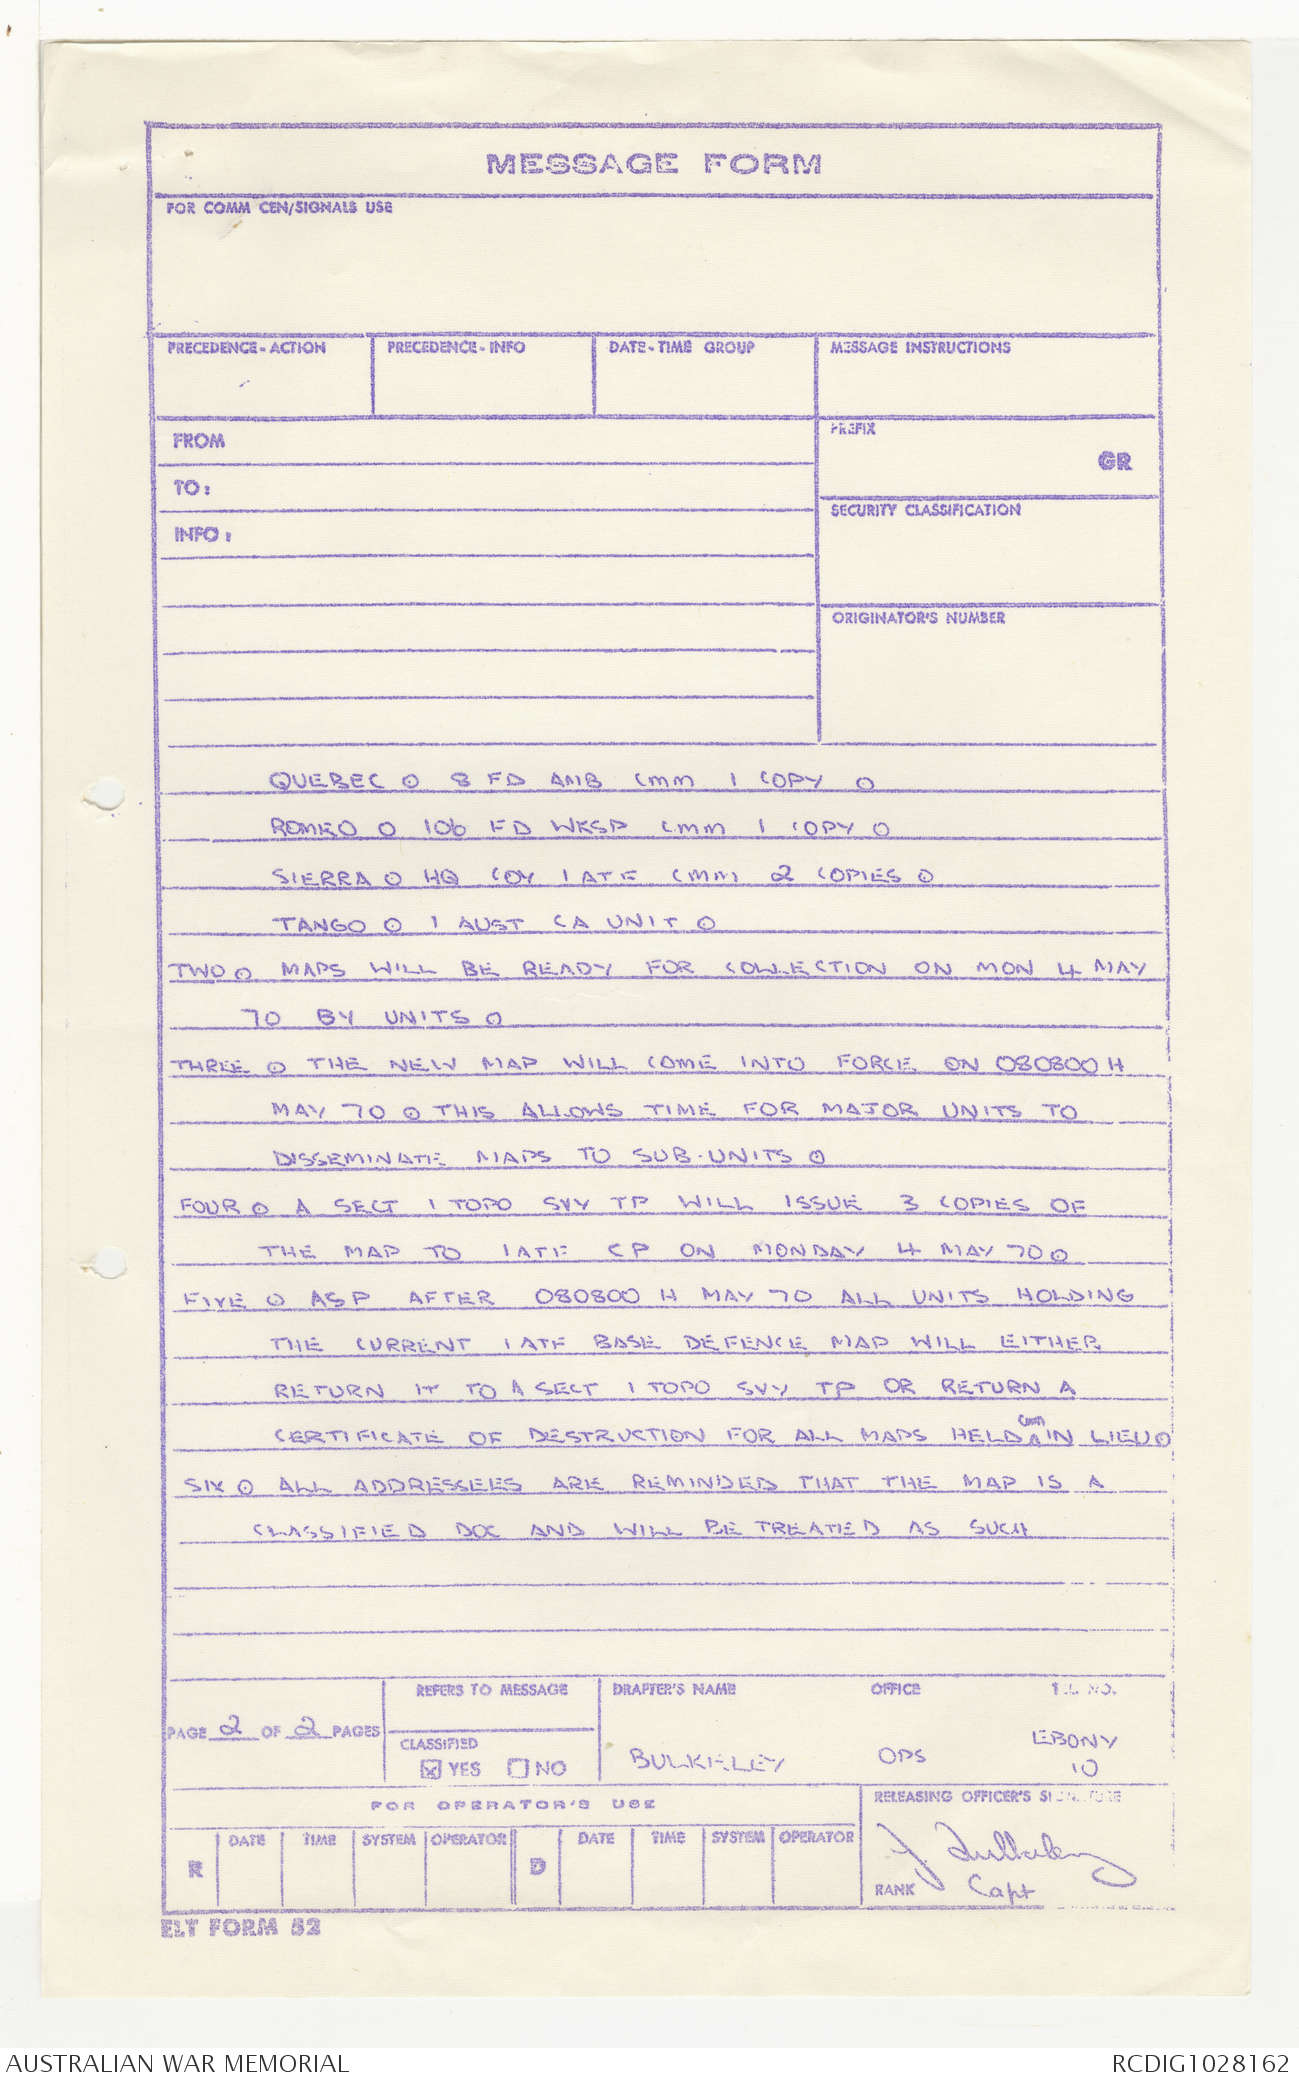 MESSAGE FORM
FOR COMM CEN/SIGNALS USE
PRECEDENCE - ACTION PRECEDENCE - INFO DATE - TIME GROUP MESSAGE INSTRUCTIONS
FROM
PREFIX
GR
TO :
SECURITY CLASSIFICATION
INFO :
ORIGINATOR'S NUMBER
QUEBEC ⊙ 8 FD AMB CMM 1 COPY ⊙
ROMEO ⊙ 106 FD WKSP CMM 1 COPY ⊙
SIERRA ⊙ HQ COY 1 ATF CMM 2 COPIES ⊙
TANGO ⊙ 1 AUST CA UNIT ⊙
TWO ⊙ MAPS WILL BE READY FOR COLLECTION ON MON 4 MAY
70 BY UNITS ⊙
THREE ⊙ THE NEW MAP WILL COME INTO FORCE ON 080800 H
MAY 70 ⊙ THIS ALLOWS TIME FOR MAJOR UNITS TO
DISSEMINATE MAPS TO SUB-UNITS ⊙
FOUR ⊙ A SECT 1 TOPO SVY TP WILL ISSUE 3 COPIES OF
THE MAP TO 1ATF CP ON MONDAY 4 MAY 70 ⊙
FIVE ⊙ ASP AFTER 080800 H MAY 70 ALL UNITS HOLDING
THE CURRENT 1 ATF BASE DEFENCE MAP WILL EITHER
RETURN IT TO A SECT 1 TOPO SVY TP OR RETURN A
CERTIFICATE OF DESTRUCTION FOR ALL MAPS HELD CMM IN LIEU ⊙
SIX ⊙ ALL ADDRESSEES ARE REMINDED THAT THE MAP IS A
CLASSIFIED DOC AND WILL BE TREATED AS SUCH
REFERS TO MESSAGE DRAFTER'S NAME OFFICE TEL NO.
PAGE 2 OF 2 PAGES
CLASSIFIED
☒ YES ☐ NO
BULKELEY OPS EBONY
10
FOR OPERATOR'S USE
RELEASING OFFICER'S SIGNATURE
R DATE TIME SYSTEM OPERATOR D DATE TIME SYSTEM OPERATOR
J Bulkeley
RANK Capt
ELT FORM 52
AUSTRALIAN WAR MEMORIAL RCDIG1028162